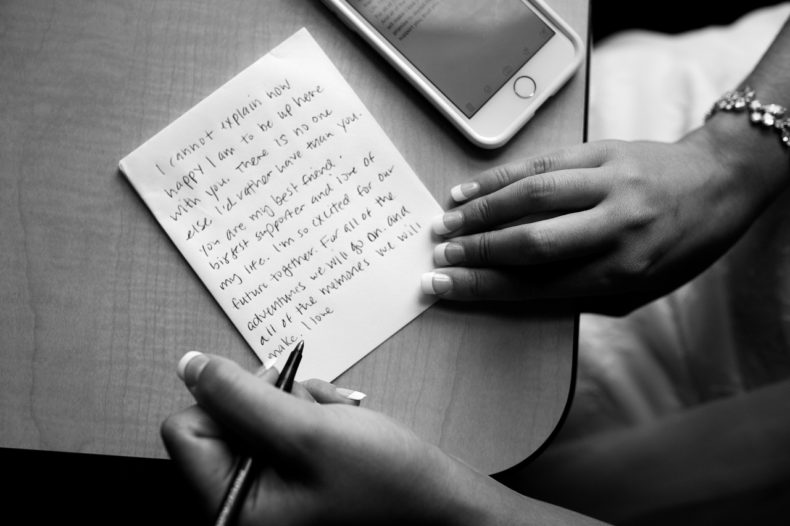 I cannot explain how
happy I am to be up here
with you. There is no one
else I'd rather have than you.
You are my best friend,
biggest supporter and love of
my life. I'm so excited for our
future together. For all of the
adventures we will go on and
all of the memories we will
make. I love